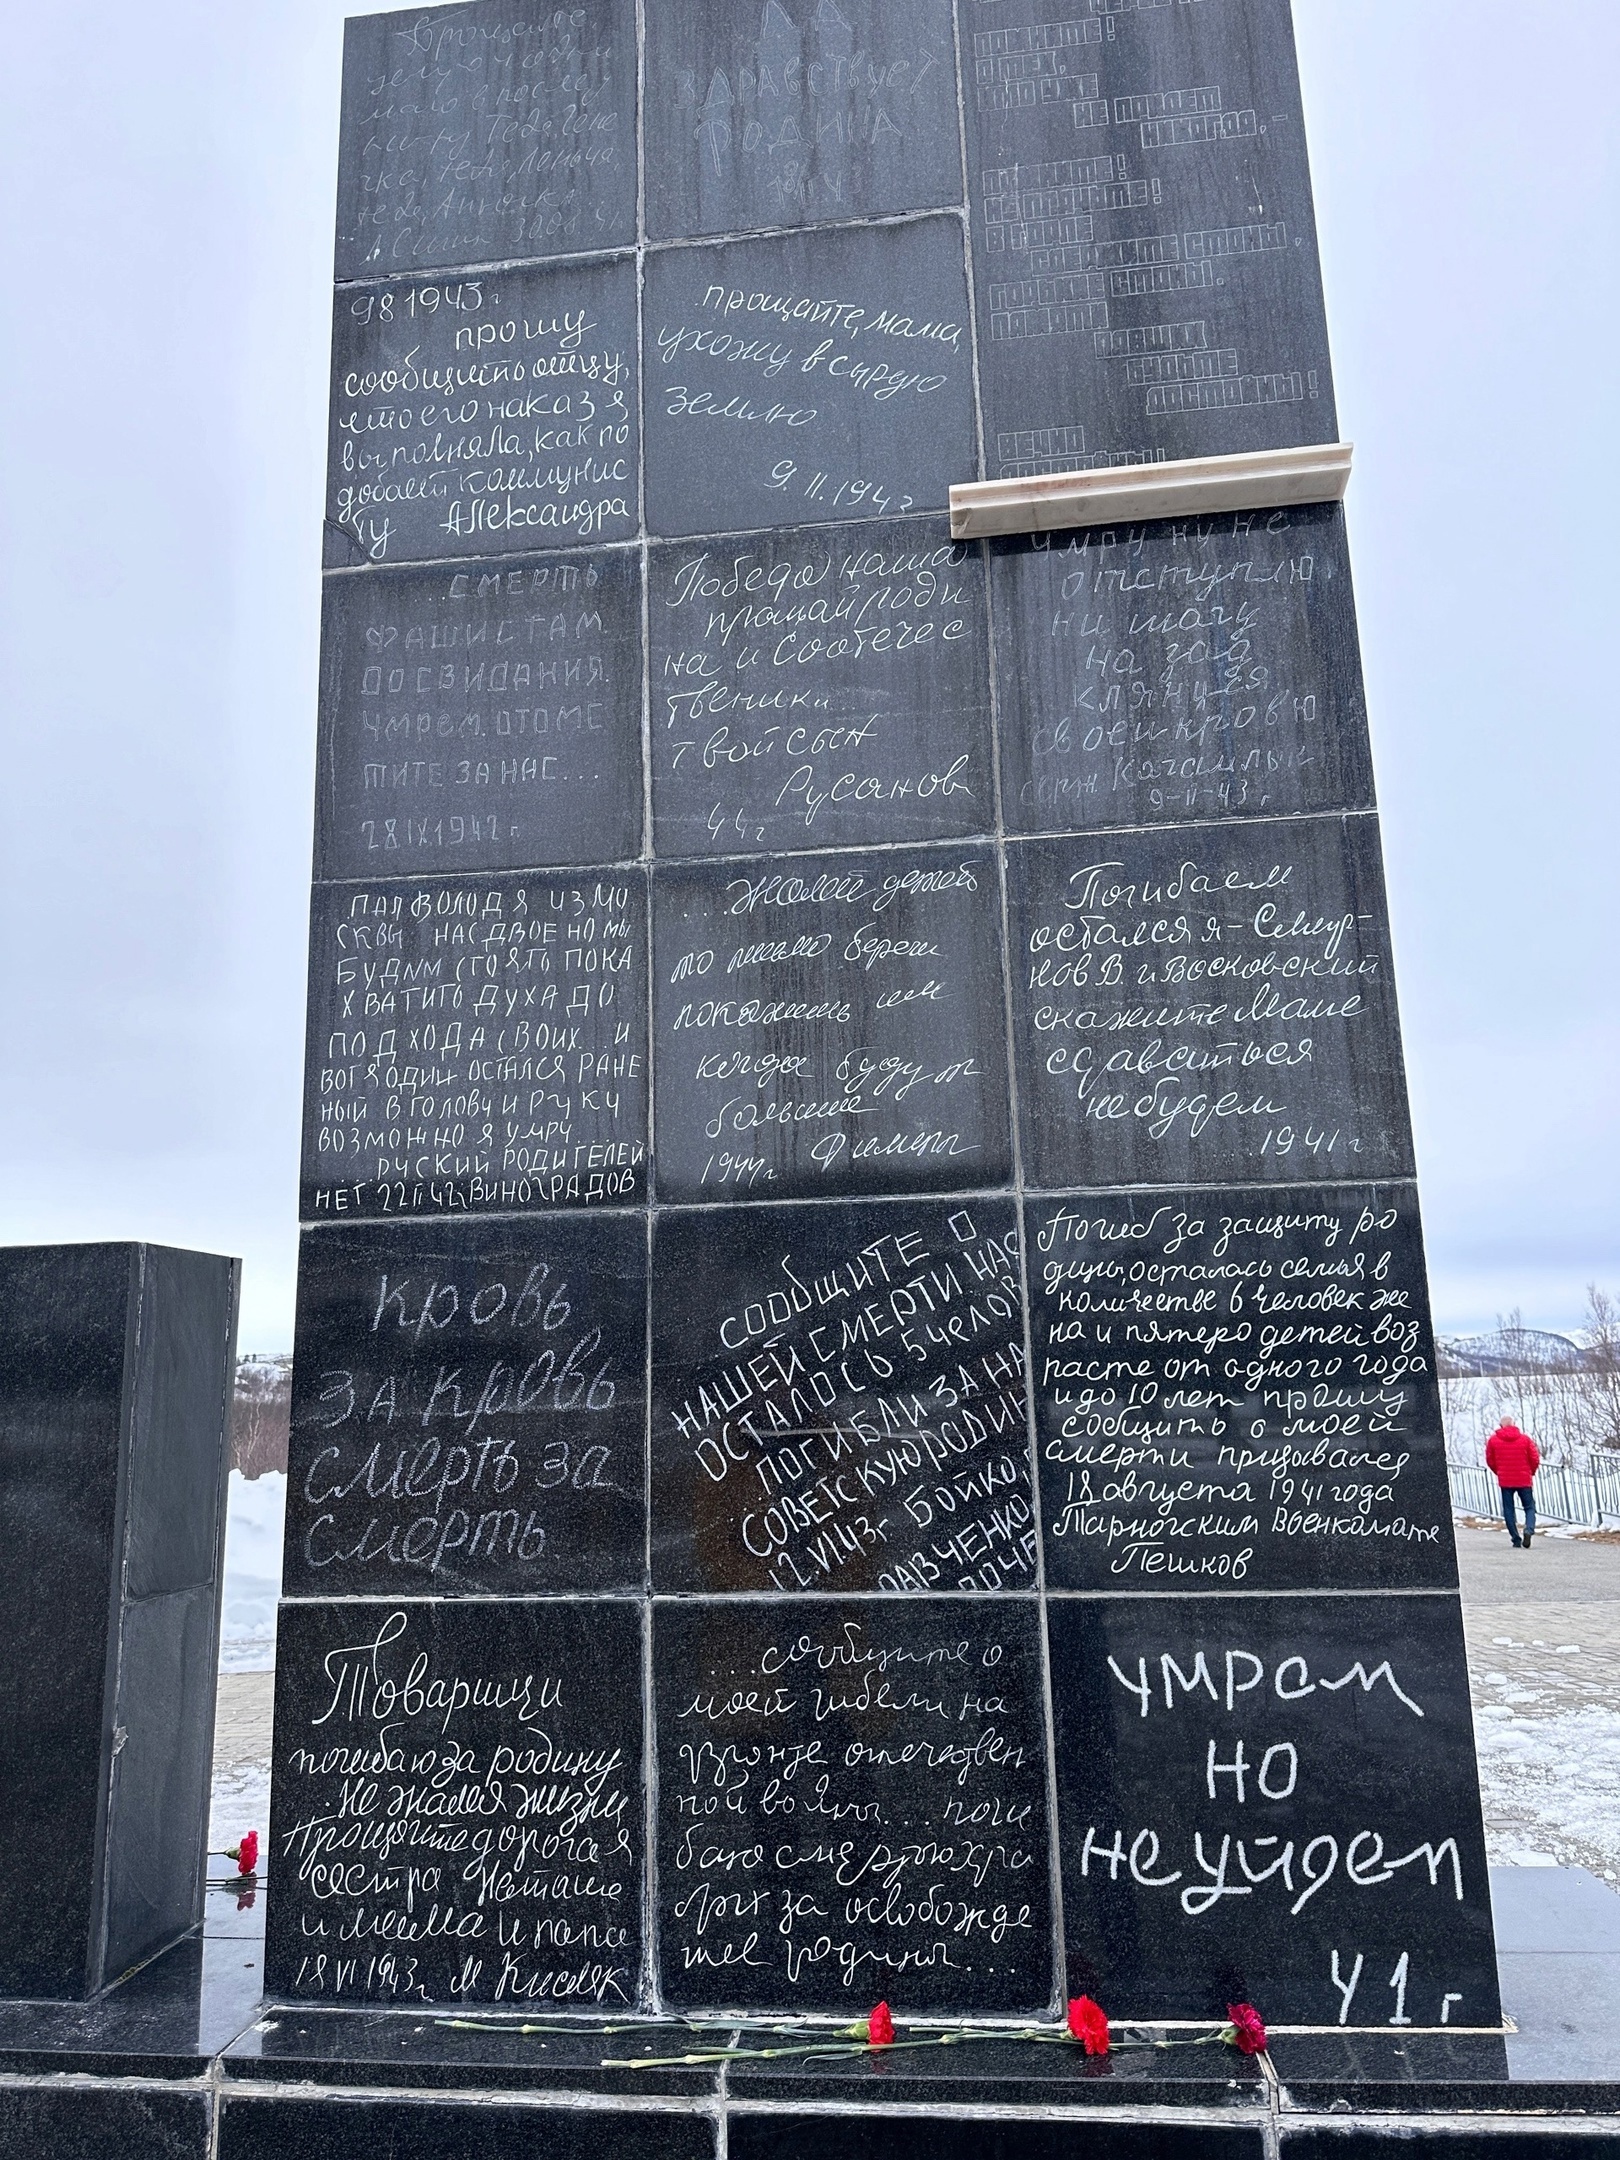 Прощайте,
целую
маю в после
тебе, Лёньча,
тебе, Анночка.
30.08.41.
ДА
ЗДРАВСТВУЕТ
РОДИНА
ПОМНИТЕ!
О ТЕХ,
КТО УЖЕ
НЕ ПРИДЕТ
НИКОГДА,-
ПОМНИТЕ!
НЕ ПЛАЧЬТЕ!
В ГОРЛЕ
СДЕРЖИТЕ СТОНЫ,
ГОРЬКИЕ СТОНЫ.
ПАМЯТИ
ПАВШИХ
БУДЬТЕ
ДОСТОЙНЫ!
ВЕЧНО
981943г
прошу
сообщить отцу,
что его наказ я
выполняла, как по
добает коммунис
ту Александра
прощайте, мама,
ухожу в сырую
землю
9 11.194 г
...СМЕРТЬ
ФАШИСТАМ
ДОСВИДАНИЯ.
УМРЕМ. ОТОМС
ТИТЕ ЗА НАС...
28 IX 1942 г.
Победа наша
прощай роди
на и Соотечес
твеники...
твой сын
Русанов
44г
умру ну не
отступлю
ни шагу
на зад
клянуся
своей кровю
серж
9-II-43г
ПАЛ ВОЛОДЯ ИЗ МО
СКВЫ НАС ДВОЕ НО МЫ
БУДИМ СТОЯТЬ ПОКА
ХВАТИТЬ ДУХА ДО
ПОДХОДА СВОИХ... И
ВОТ Я ОДИН ОСТАЛСЯ РАНЕ
НЫЙ В ГОЛОВУ И РУКУ
ВОЗМОЖНО Я УМРУ.
РУСКИЙ РОДИТЕЛЕЙ
НЕТ 22 II 42г ВИНОГРАДОВ
...Жалей детей
то письмо береги
покажишь им
когда будут
большие
1944г. Фимеры
Погибаем
остался я-Смир-
нов В. и Восковский
скажите Маме
сдаваться
не будем
1941г
Кровь
за кровь
смерть за
смерть.
СООБЩИТЕ О
НАШЕЙ СМЕРТИ НАС
ОСТАЛОСЬ 5 ЧЕЛОВ
..ПОГИБЛИ ЗА НА
СОВЕТСКУЮ РОДИН
12.VI.43г БОЙКО,
ЧЕНКО
Погиб за защиту ро
дины, осталась семья в
количестве 6 человек же
на и пятеро детей воз
расте от одного года
и до 10 лет прошу
сообщить о моей
смерти призывался
18 августа 1941 года
Тарногским Военкомате
Пешков
Товарищи
погибаю за родину
.Не жалея жизни
Прощайте дорогая
сестра Наташа
и мама и папа
18 VI 1943г. М Кисляк
...сообщите о
моей гибели на
фронте отечествен
ной войны... поги
баю смертью хра
брых за освобожде
ние родины...
умрем
но
не уйдем
41г